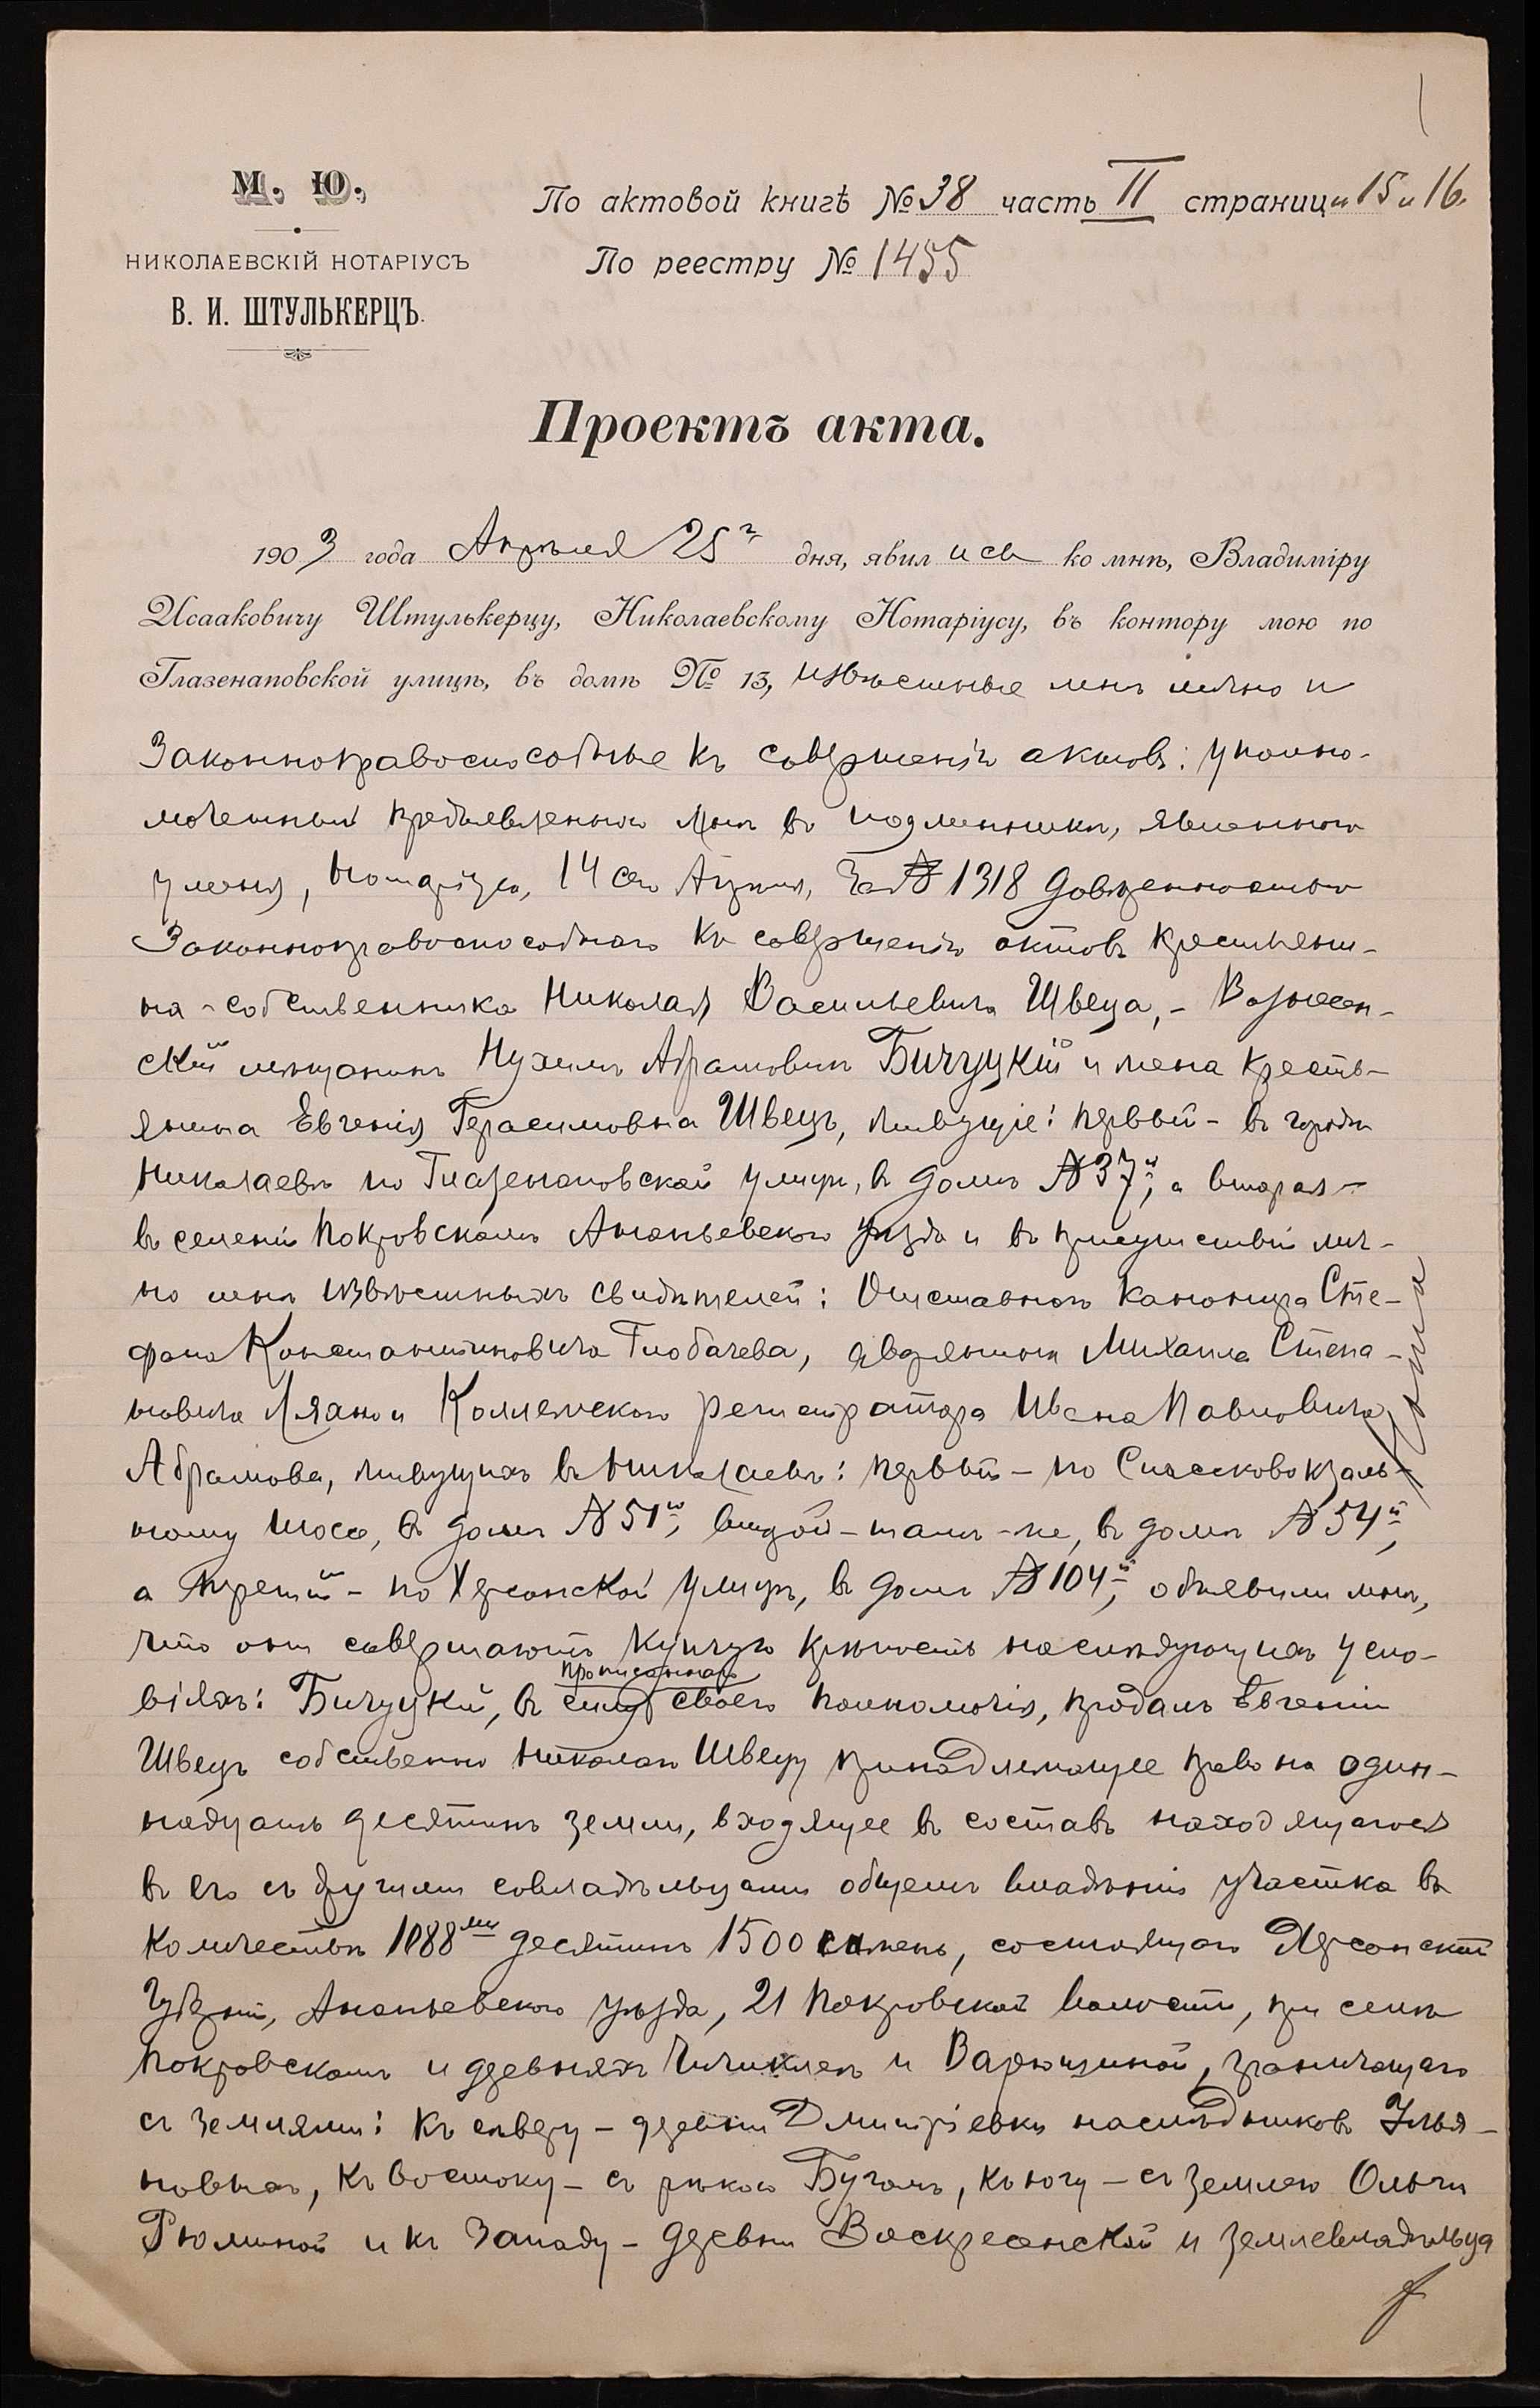 М. Ю.
НИКОЛАЕВСКІЙ НОТАРІУСЪ
В. И. ШТУЛЬКЕРЦЪ.
По актовой книгѣ № 38 часть II страници 15 и 16.
По реестру № 1455
Проектъ акта.
1903 года Апрѣля 25 дня, явились ко мнѣ, Владиміру
Исааковичу Штулькерцу, Николаевскому Нотаріусу, въ контору мою по
Глазенаповской улицѣ, въ домѣ № 13, извѣстные мнѣ лично и
законноправоспособные къ совершенію актовъ: уполно-
моченный предъявленною мнѣ въ подлинникѣ, явленною
у меня, Нотаріуса, 14 сего Апрѣля, за № 1318 довѣренностью
законноправоспособнаго къ совершенію актовъ крестьяни-
на-собственника Николая Васильевича Швеца,- Вознесен-
скій мѣщанинъ Нухимъ Абрамовичъ Бичуцкій и жена кресть-
янина Евгенія Герасимовна Швецъ, живущіе: первый - въ городѣ
Николаевѣ по Глазенаповской улицѣ, въ домѣ № 37й, а вторая -
въ селеніи Покровскомъ Ананьевскаго уѣзда и въ присутствіи лич-
но мнѣ извѣстныхъ свидѣтелей: Отставного канонира Сте-
фана Константиновича Глобачева, дворянина Михаила Степа-
новича Ляано и Коллежскаго регистратора Ивана Павловича
Абрамова, живущихъ въ Николаевѣ: первый - по Спасковокзаль-
ному шоссе, въ домѣ № 51й, второй - тамъ-же, въ домѣ № 54й,
а третій - по Херсонской улицѣ, въ домѣ № 104й, объявили мнѣ,
что они совершаютъ купчую крѣпость на слѣдующихъ усло-
віяхъ: Бичуцкій, въ силу прописаннаго своего полномочія, продалъ Евгеніи
Швецъ собственно Николаю Швецу принадлежащее право на один-
надцать десятинъ земли, входящее въ составъ находящагося
въ его съ другими совладѣльцами общемъ владѣніи участка въ
количествѣ 1088ми десятинъ 1500 сажень, состоящаго Херсонской
Губерніи, Ананьевскаго уѣзда, 21 Покровской волости, при селѣ
Покровскомъ и деревняхъ Чичиклеѣ и Варюшиной, граничащаго
съ землями: къ сѣверу - деревни Дмитріевки наслѣдниковъ Улья-
новыхъ, къ востоку - съ рѣкою Бугомъ, къ югу - съ землею Ольги
Рюминой и къ западу - деревни Воскресенской и землевладѣльца